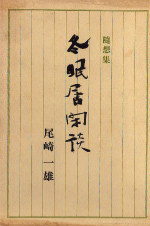 随想集
冬眠居閑談
尾崎一雄